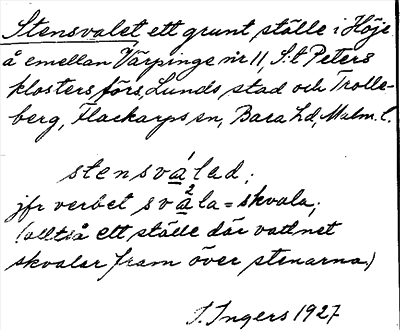 Stensvalet ett grunt ställe i Höje
å emellan Värpinge nr 11, S:t Peters
klosters förs, Lunds stad och Trolle-
berg, Flackarps sn, Bara hd, Malm. l.
stensválad;
jfr verbet svå²la = skvala;
(alltså ett ställe där vattnet
skvalar fram över stenarna)
I. Ingers 1927